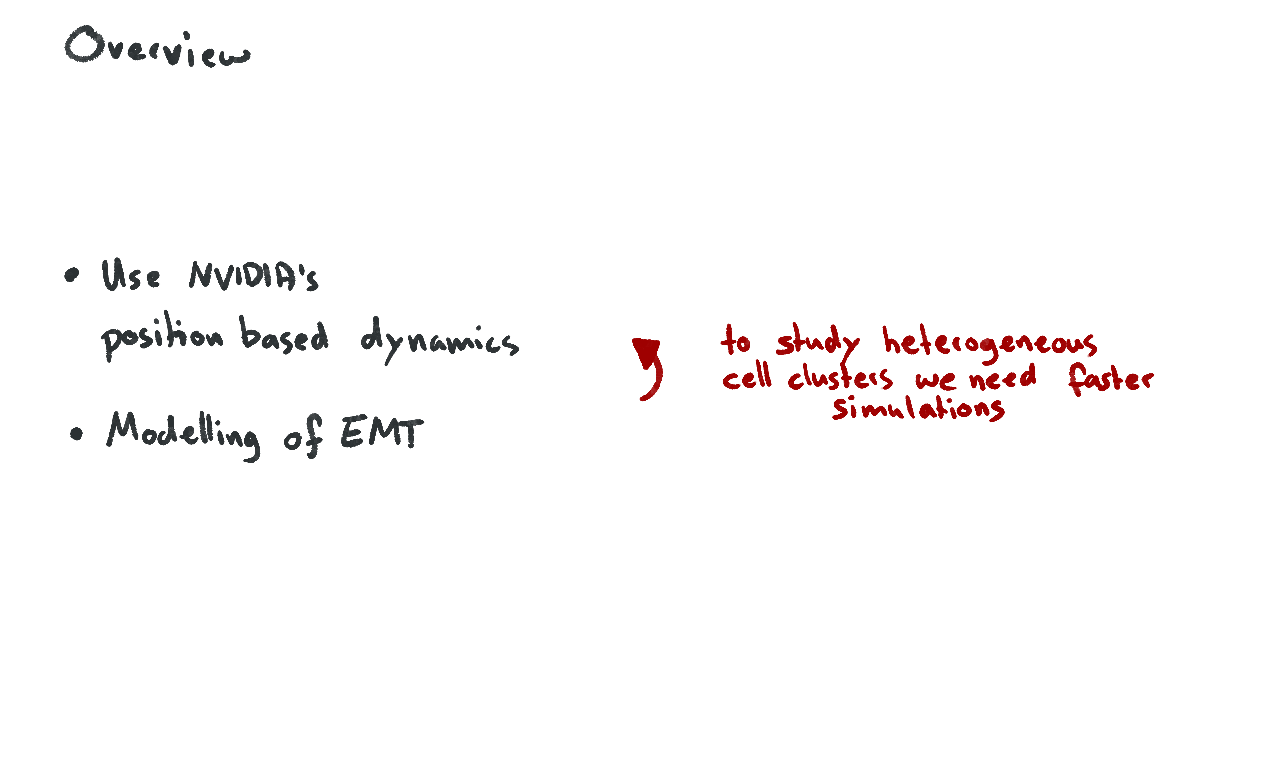 Overview
• Use NVIDIA's
position based dynamics
• Modelling of EMT
to study heterogeneous
cell clusters we need faster
simulations